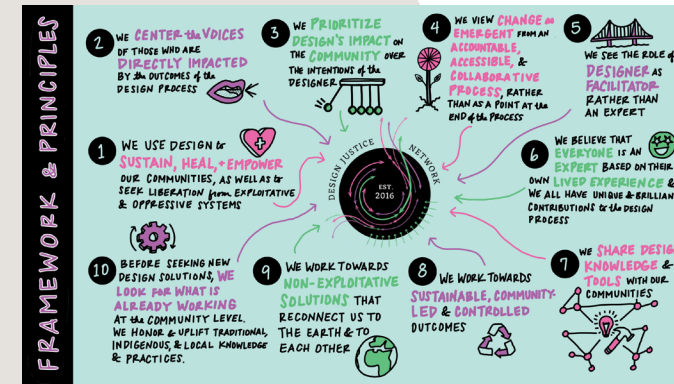 FRAMEWORK & PRINCIPLES
1
WE USE DESIGN to
SUSTAIN, HEAL, + EMPOWER
OUR COMMUNITIES, AS WELL AS to
SEEK LIBERATION from EXPLOITATIVE
& OPPRESSIVE SYSTEMS
2
WE CENTER the VOICES
OF THOSE WHO ARE
DIRECTLY IMPACTED
BY the OUTCOMES of the
DESIGN PROCESS
3
WE PRIORITIZE
DESIGN'S IMPACT ON
THE COMMUNITY OVER
THE INTENTIONS of the
DESIGNER
4
WE VIEW CHANGE as
EMERGENT FROM AN
ACCOUNTABLE,
ACCESSIBLE, &
COLLABORATIVE
PROCESS, RATHER
THAN AS A POINT AT the
END of the PROCESS
5
WE SEE THE ROLE of
DESIGNER AS
FACILITATOR
RATHER THAN
AN EXPERT
6
WE BELIEVE THAT
EVERYONE IS AN
EXPERT BASED ON THEIR
OWN LIVED EXPERIENCE &
WE ALL HAVE UNIQUE & BRILLIAN
CONTRIBUTIONS to the DESIGN
PROCESS
7
WE SHARE DESIG
KNOWLEDGE &
TOOLS WITH OUR
COMMUNITIES
8
WE WORK TOWARDS
SUSTAINABLE, COMMUNITY-
LED & CONTROLLED
OUTCOMES
9
WE WORK TOWARDS
NON-EXPLOITATIVE
SOLUTIONS THAT
RECONNECT US TO
THE EARTH & TO
EACH OTHER
10
BEFORE SEEKING NEW
DESIGN SOLUTIONS, WE
LOOK FOR WHAT IS
ALREADY WORKING
AT the COMMUNITY LEVEL.
WE HONOR & UPLIFT TRADITIONAL,
INDIGENOUS, & LOCAL KNOWLEDGE
& PRACTICES.
DESIGN JUSTICE NETWORK
EST.
2016